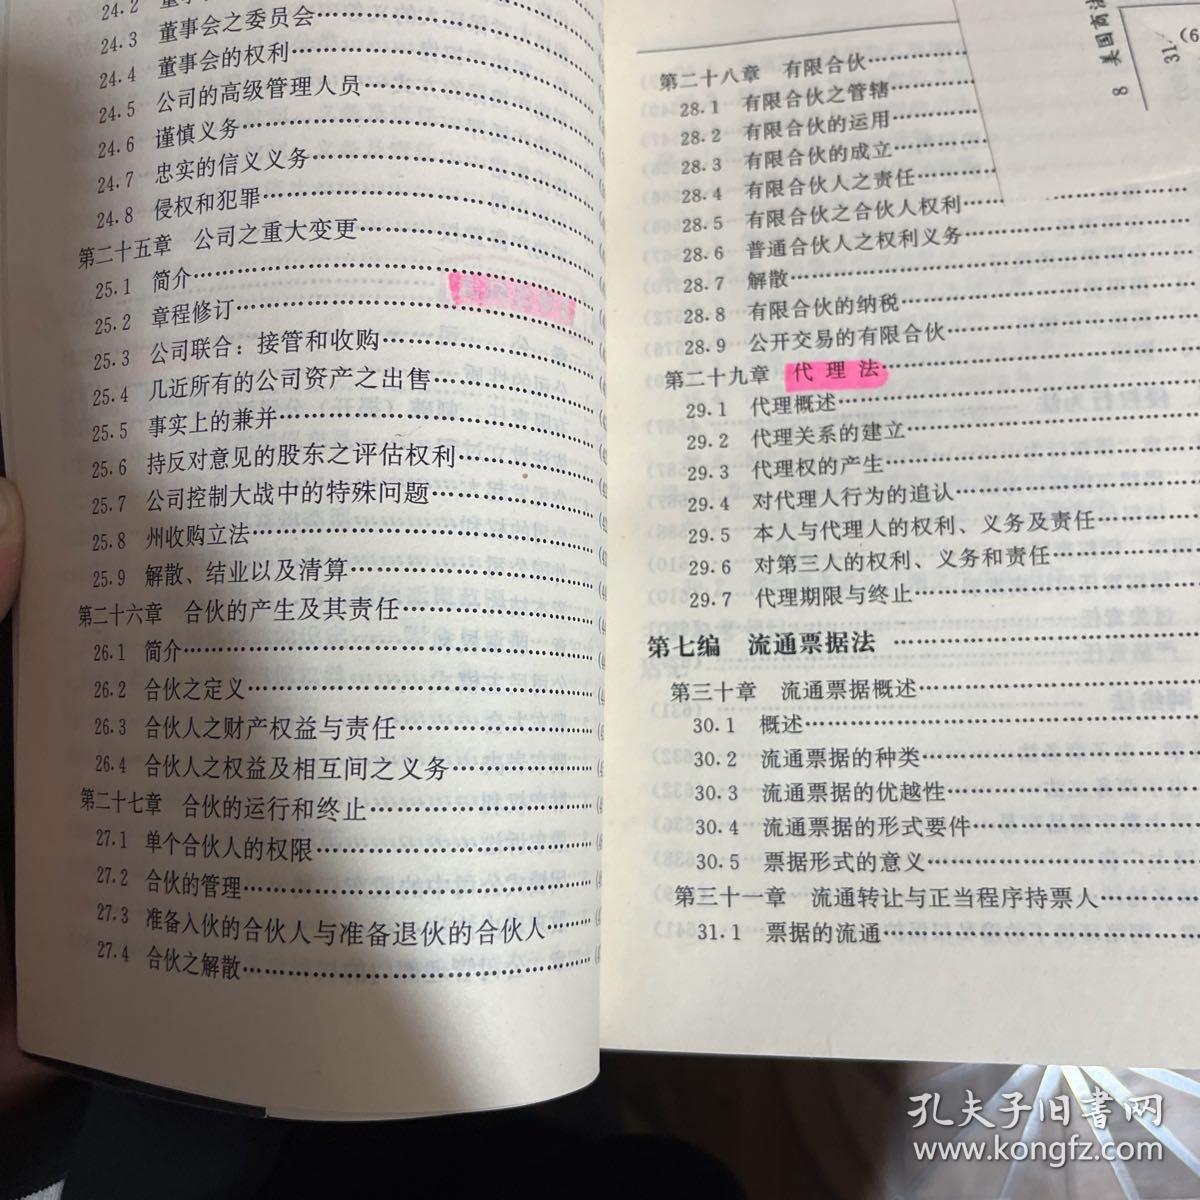 24.2
24.3 董事会之委员会
24.4 董事会的权利
24.5 公司的高级管理人员
24.6 谨慎义务
24.7 忠实的信义义务
24.8 侵权和犯罪
第二十五章 公司之重大变更
25.1 简介
25.2 章程修订
25.3 公司联合：接管和收购
25.4 几近所有的公司资产之出售
25.5 事实上的兼并
25.6 持反对意见的股东之评估权利
25.7 公司控制大战中的特殊问题
25.8 州收购立法
25.9 解散、结业以及清算
第二十六章 合伙的产生及其责任
26.1 简介
26.2 合伙之定义
26.3 合伙人之财产权益与责任
26.4 合伙人之权益及相互间之义务
第二十七章 合伙的运行和终止
27.1 单个合伙人的权限
27.2 合伙的管理
27.3 准备入伙的合伙人与准备退伙的合伙人
27.4 合伙之解散
8 美国商法
31.
(6
第二十八章 有限合伙
28.1 有限合伙之管辖
28.2 有限合伙的运用
28.3 有限合伙的成立
28.4 有限合伙人之责任
28.5 有限合伙之合伙人权利
28.6 普通合伙人之权利义务
28.7 解散
28.8 有限合伙的纳税
28.9 公开交易的有限合伙
第二十九章 代理法
29.1 代理概述
29.2 代理关系的建立
29.3 代理权的产生
29.4 对代理人行为的追认
29.5 本人与代理人的权利、义务及责任
29.6 对第三人的权利、义务和责任
29.7 代理期限与终止
第七编 流通票据法
第三十章 流通票据概述
30.1 概述
30.2 流通票据的种类
30.3 流通票据的优越性
30.4 流通票据的形式要件
30.5 票据形式的意义
第三十一章 流通转让与正当程序持票人
31.1 票据的流通
孔夫子旧书网
www.kongfz.com